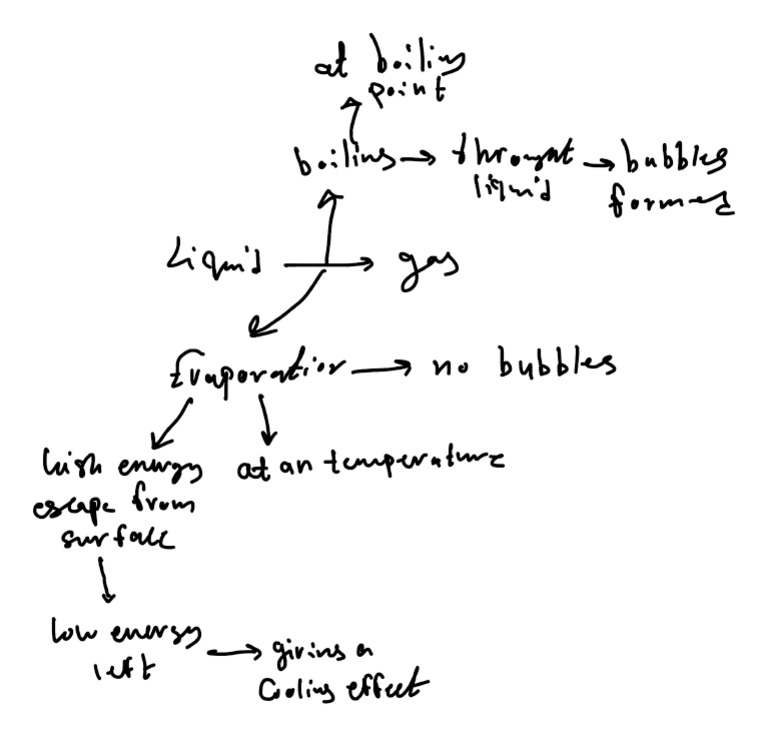 at boiling
point
boiling → throught → bubbles
liquid formed
Liquid → gas
Evaporation → no bubbles
high energy at an temperature
escape from
surface
low energy → giving a
left cooling effect